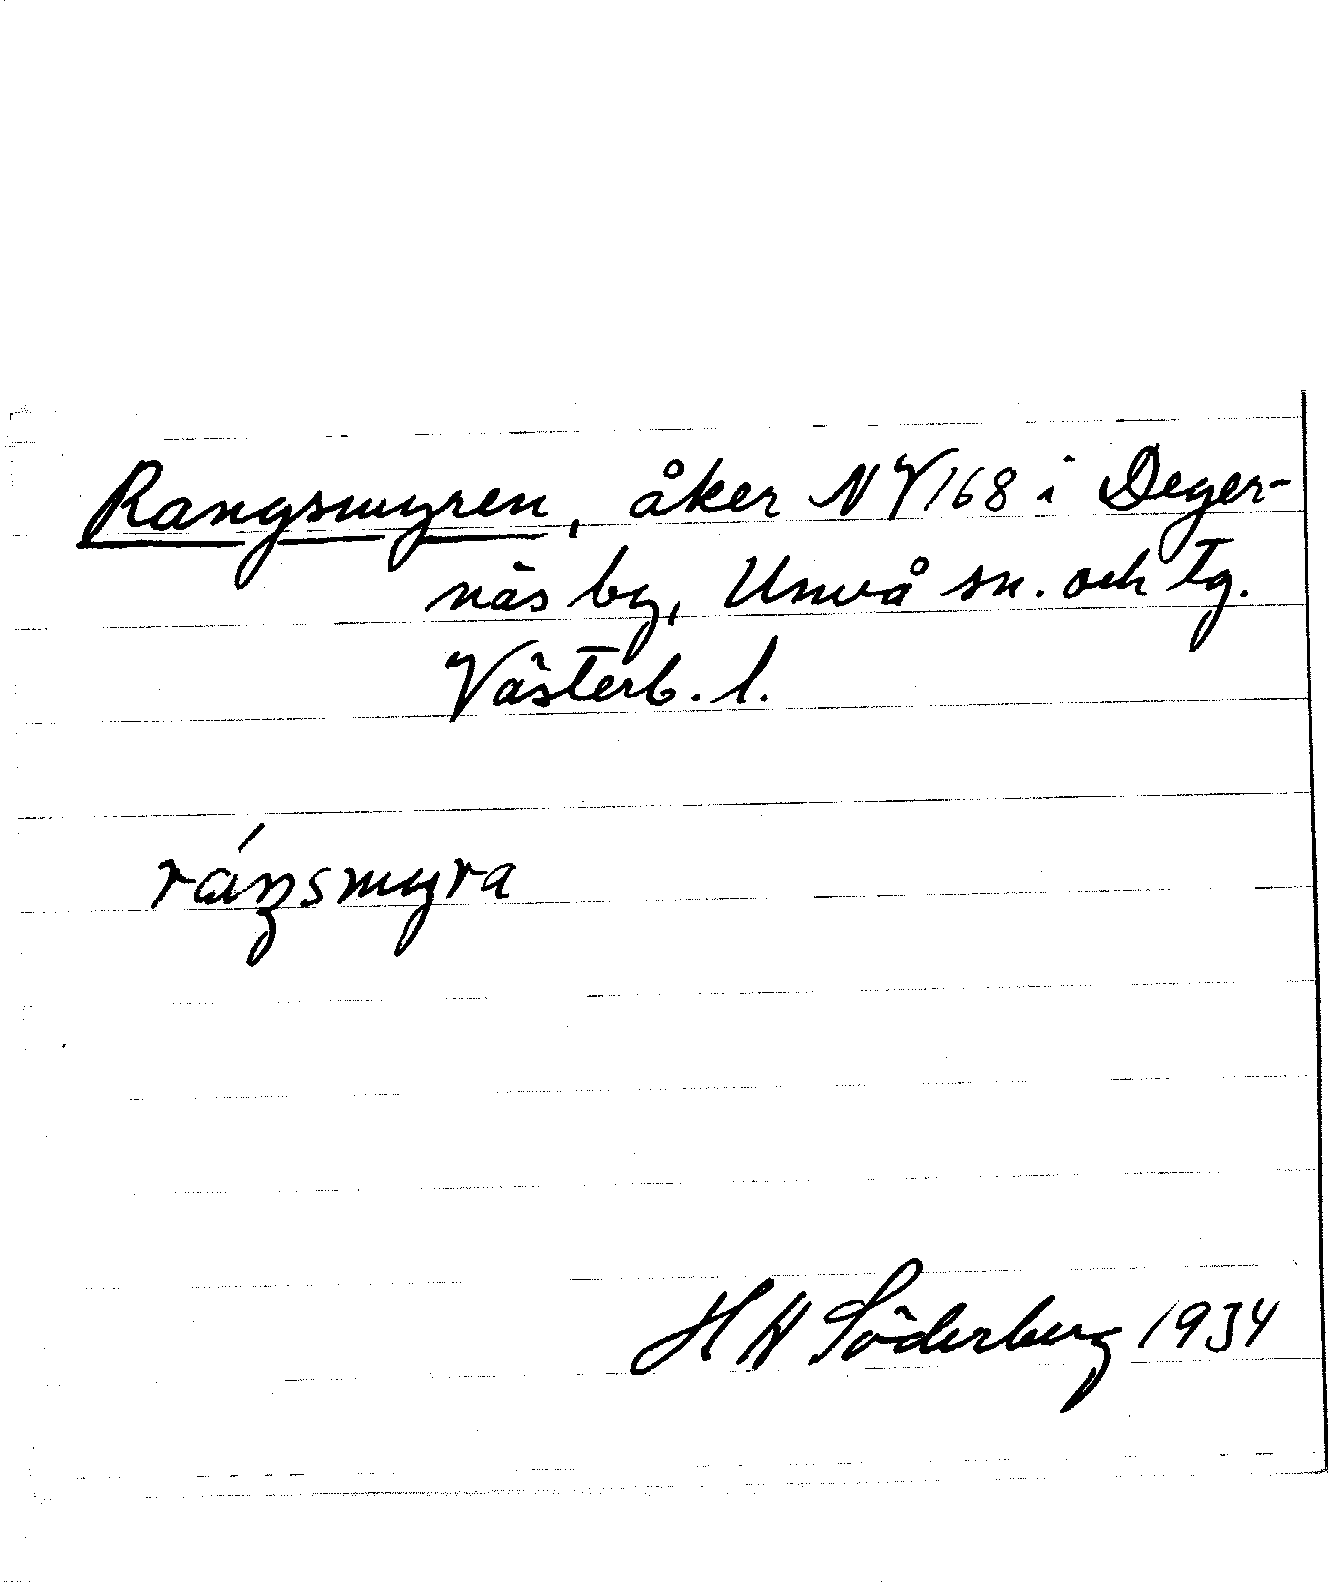 Rangsmyren, åker NV 168 i Deger-
näs by, Umeå sn. och tg.
Västerb. l.
ráŋsmyra
H H Söderberg 1934